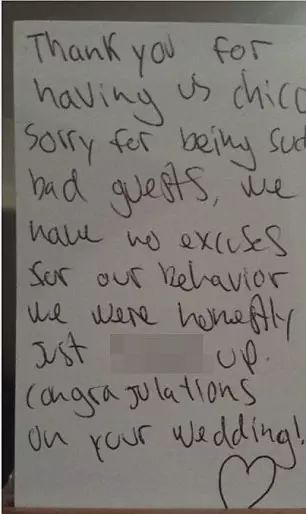 Thank you for
having us chico
Sorry for being suc
bad guests, we
have no excuses
for our behavior
we were honestly
just up.
congratulations
on your wedding!